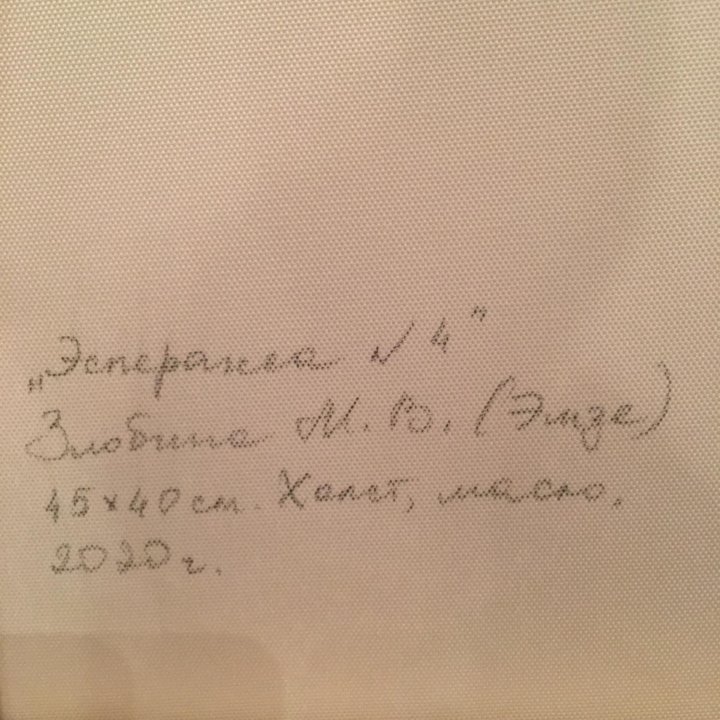 „Эсперанса №4"
Злобина М.В. (Эмзе)
45×40см. Холст, масло,
2020г.